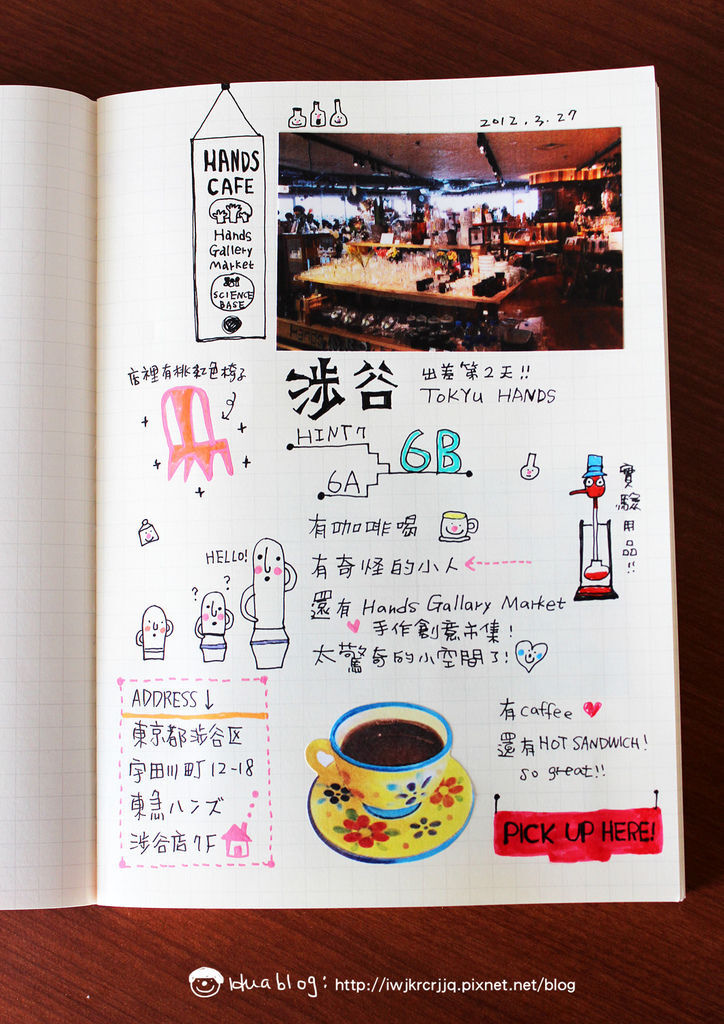 HANDS
CAFE
Hands
Gallery
Market
SCIENCE
BASE
2012.3.27
店裡有桃紅色椅子
渋谷
出差第2天!!
TOKYU HANDS
HINT7
6B
6A
實驗用品!!
有咖啡喝
HELLO!
? ?
有奇怪的小人
還有 Hands Gallary Market
手作創意市集!
太驚奇的小空間了!
ADDRESS↓
東京都渋谷区
宇田川町12-18
東急ハンズ
渋谷店7F
有caffee
還有HOT SANDWICH!
so great!!
PICK UP HERE!
blog: http://iwjkrcrjjq.pixnet.net/blog